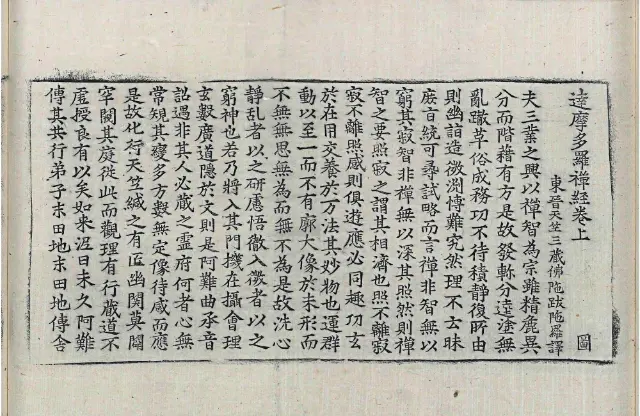 達摩多羅禪經卷上
東晉天竺三藏佛陁跋陁羅譯 圖
夫三業之興以禪智為宗雖精麁異
分而階藉有方是故發軫分逵塗無
亂轍革俗成務功不待積靜復所由
則幽詣造微淵博難究然理不云昧
庶旨統可尋試略而言禪非智無以
窮其寂智非禪無以深其照然則禪
智之要照寂之謂其相濟也照不離寂
寂不離照感則俱遊應必同趣功玄
於在用交養於万法其妙物也運群
動以至一而不有廓大像於未形而
不無無思無為而無不為是故洗心
靜乱者以之研慮悟徹入微者以之
窮神也若乃將入其門機在攝會理
玄數廣道隱於文則是阿難曲承音
詔遇非其人必藏之靈府何者心無
常規其變多方數無定像待感而應
是故化行天竺緘之有匠幽関莫闢
罕闚其庭從此而觀理有行藏道不
虛授良有以矣如來泥曰未久阿難
傳其共行弟子末田地末田地傳舍